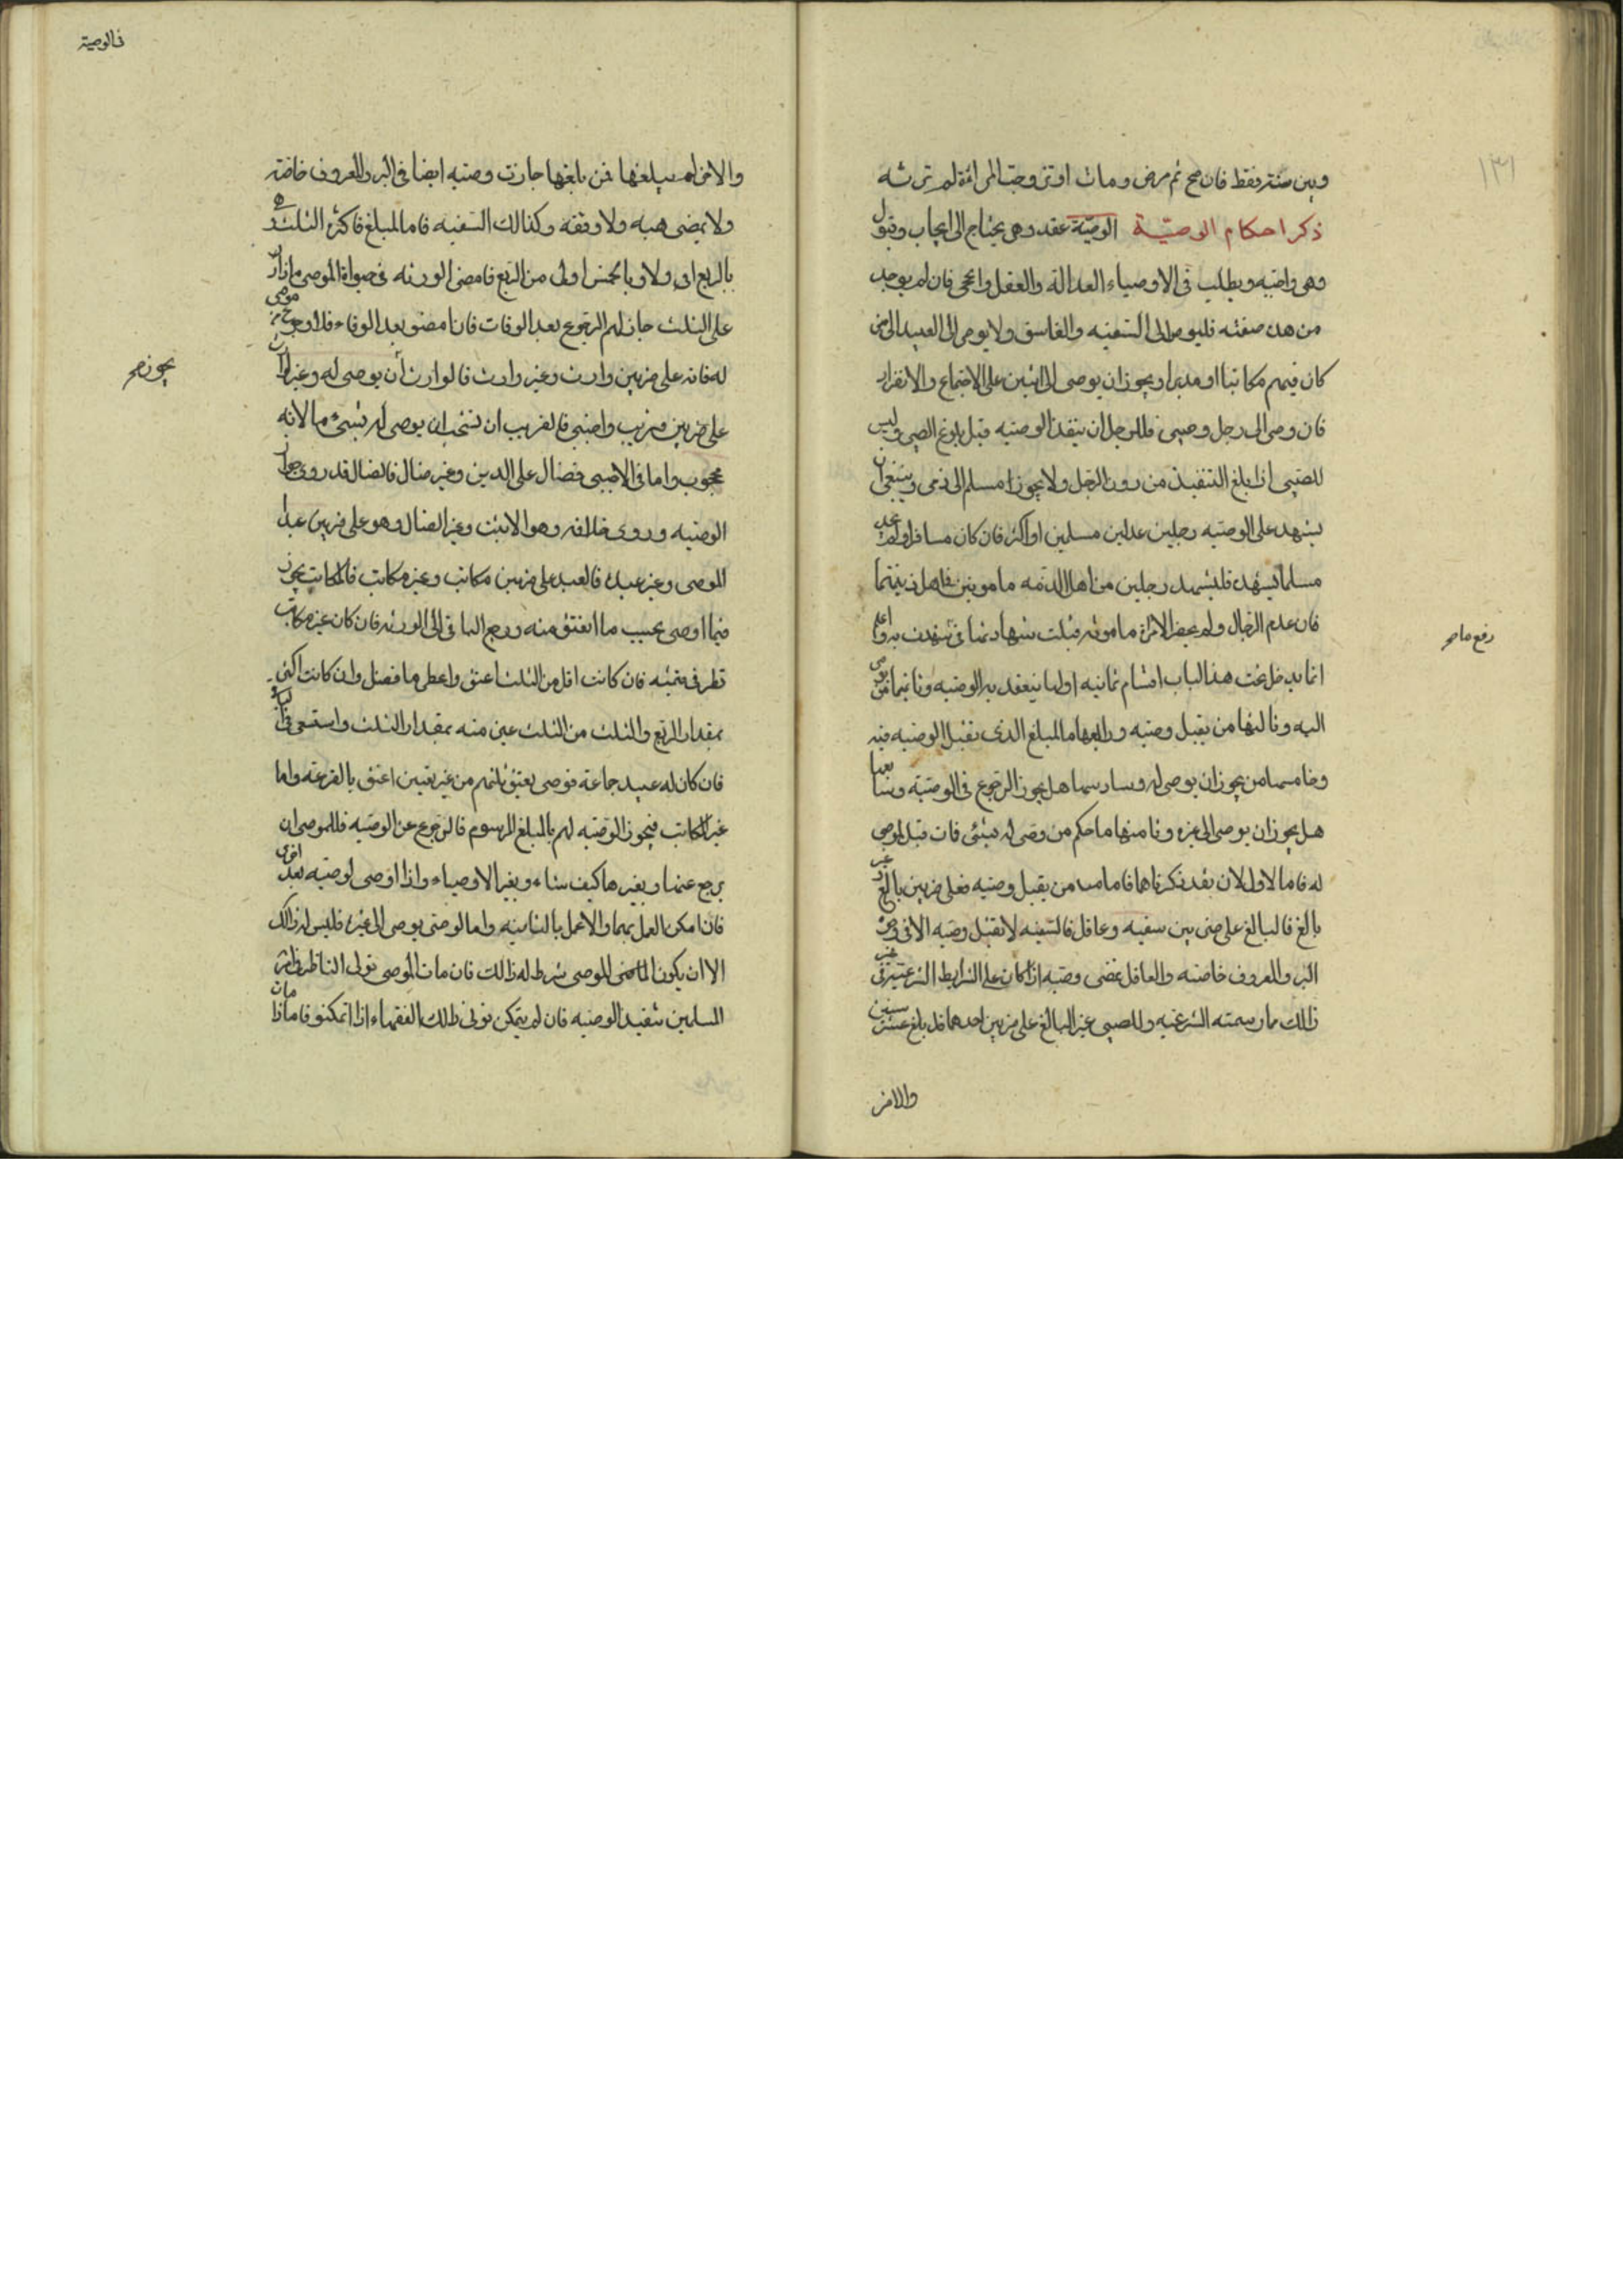 ١٣١
وبين سنته فقط فان صح ثم مرض ومات او تزوجت المرائة لم ترثه
ذكر احكام الوصيّة الوصيّة عقد وهى يحتاج الى ايجاب وقبول
وهى واجبه ويطلب فى الاوصياء العدالة والعقل والحجى فان لم يوجد
من هذه صفته فليوص الى السفيه والفاسق ولا يوصى الى العبيد الى من
كان فيهم مكاتبا او مدبرا ويجوز ان يوصى الى اثنين على الاجتماع والانفراد
فان وصى الى رجل وصبى فللرجل ان ينفذ الوصيه قبل بلوغ الصبى وليس
للصبى اذا بلغ التنفيذ من دون الرجل ولا يجوز ا مسلم الى ذمى وينبغى ان
يشهد على الوصيه رجلين عدلين مسلمين او اكثر فان كان مسافرا ولم يجد
مسلما يشهد فليشهد رجلين من اهل الذمه مامونين
فان عدم الرجال ولم يحضر الا امراة مامونه قبلت شهادتها فى به واعلم
انما يدخل تحت هذا الباب اقسام ثمانيه اولها ينعقد به الوصيه وثانيها من يوصى
اليه وثالثها من يقبل وصيه ورابعها ما المبلغ الذى تقبل الوصيه فيه
وخامسها من يجوز ان يوصى له وسادسها هل يجوز الرجوع فى الوصيّة وسابعها
هل يجوز ان يوصى الى غيره وثامنها ما حكم من وصى له بشئ فمات قبل الموصى
له فاما الاولان فقد ذكرناهما فاما من يقبل وصيه فعلى ضربين بالغ وغير
بالغ فالبالغ على ضربين سفيه وعاقل فالسفيه لا تقبل وصيه الا فى وجوه
البر والمعروف خاصه والعاقل تمضى وصيه اذا كان على الشرايط الشرعيه فى غير
ذالك ما رسمته الشرعيه والصبى غير البالغ على ضربين احدهما قد بلغ عشر سنين
والاخر
رفع ما صح
فى الوصية
والاخر لم يبلغها فمن بلغها جازت وصيه ايضا فى البر والمعروف خاصه
ولا يمضى هبه ولا وقفه وكذالك السفيه فاما المبلغ فاكثره الثلث و
بالربع اولى و بالخمس اولى من الربع فامضى الورثه فى حيواة الموصى ما زاد
على الثلث جاز لهم الرجوع بعد الوفات فان امضو بعد الوفاء فلا رجوع
له فانه على ضربين وارث وغير وارث فالوارث أن يوصى له وغير الوارث
على ضربين قريب واجنبى فالقريب ان نستحب ان يوصى له بشىء ما لانه
محجوب واما فى الاجنبى فضال على الدين وغير ضال فالضال قد روى جواز
الوصيه وروى خلافه وهو الاثبت وغير الضال وهو على ضربين عبد
الموصى وغير عبده فالعبد على ضربين مكاتب وغير مكاتب فالمكاتب يجوز
فيما اوصى بحسب ما انعتق منه ورجع الباقى الى الورثه فان كان غير مكاتب
نظر فى قيمته فان كانت اقل من الثلث اعتق واعطى ما فضل وان كانت اكثر
بمقدار الربع والثلث من الثلث عين منه بمقدار الثلث واستسعى فى الباقى
فان كان له عبيد جماعة فوصى بعتق ثلثهم من غير تعيين اعتق بالقرعة واما
غير المكاتب فيجوز الوصيّه لهم بالمبلغ المرسوم فالرجوع عن الوصيّه فللموصى ان
يرجع عنها ويغيرها كيف شاء ويغير الاوصياء واذا اوصى لوصيّه بعد اخرى
فان امكن العمل بهما والا عمل بالثانيه واما الوصى يوصى الى غيره فليس له ذالك
الا ان يكون الموصى شرط له ذالك فان مات الموصى تولى الناظر فى امر
المسلمين تنفيذ الوصيه فان لم يتمكن تولى ذالك الفقهاء اذا تمكنو فاما اذا مات
يجوز صح